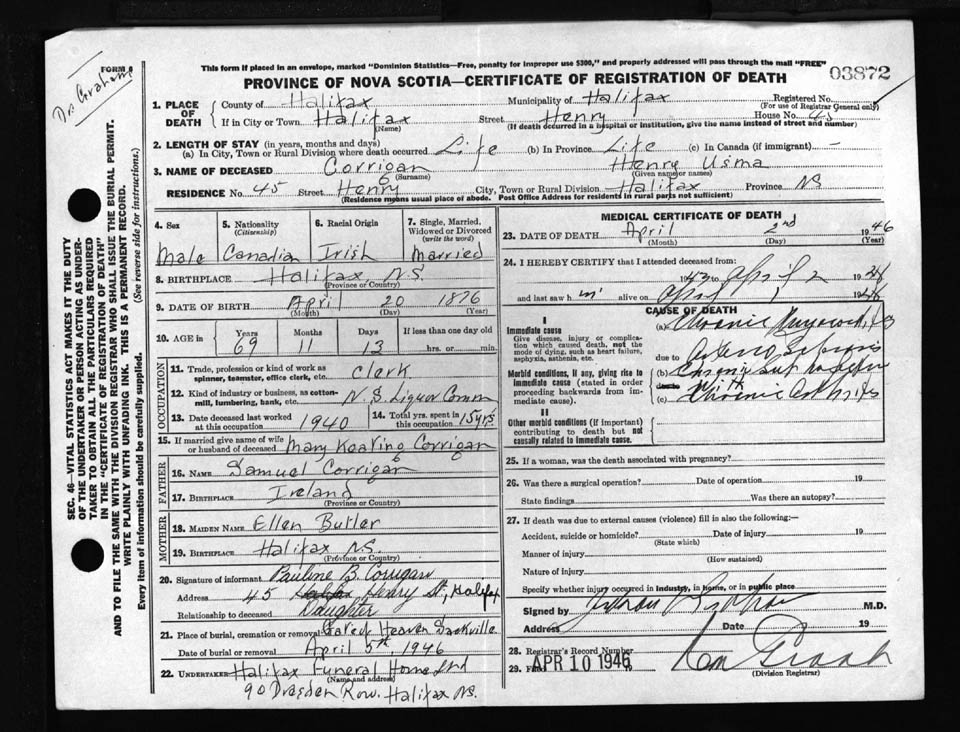 FORM 8
Dr Graham
This form if placed in an envelope, marked "Dominion Statistics—Free, penalty for improper use $300," and properly addressed will pass through the mail "FREE"
PROVINCE OF NOVA SCOTIA—CERTIFICATE OF REGISTRATION OF DEATH
03872
SEC. 46—VITAL STATISTICS ACT MAKES IT THE DUTY
OF THE UNDERTAKER OR PERSON ACTING AS UNDER-
TAKER TO OBTAIN ALL THE PARTICULARS REQUIRED
IN THE "CERTIFICATE OF REGISTRATION OF DEATH"
AND TO FILE THE SAME WITH THE DIVISION REGISTRAR WHO SHALL ISSUE THE BURIAL PERMIT.
WRITE PLAINLY WITH UNFADING INK. THIS IS A PERMANENT RECORD.
Every item of information should be carefully supplied. (See reverse side for instructions.)
1. PLACE OF DEATH County of Halifax Municipality of Halifax Registered No.
(For use of Registrar General only)
If in City or Town Halifax Street Henry House No. 45
(Name) (If death occurred in a hospital or institution, give the name instead of street and number)
2. LENGTH OF STAY (in years, months and days)
(a) In City, Town or Rural Division where death occurred Life (b) In Province Life (c) In Canada (if immigrant) —
3. NAME OF DECEASED Corrigan Henry Usma
(Surname) (Given name or names)
RESIDENCE No. 45 Street Henry City, Town or Rural Division Halifax Province NS
(Residence means usual place of abode. Post Office Address for residents in rural parts not sufficient)
4. Sex 5. Nationality (Citizenship) 6. Racial Origin 7. Single, Married, Widowed or Divorced (write the word)
Male Canadian Irish Married
8. BIRTHPLACE Halifax, N.S.
(Province or Country)
9. DATE OF BIRTH April 20 1876
(Month) (Day) (Year)
10. AGE in Years Months Days If less than one day
69 11 13 hrs. or min.
OCCUPATION
11. Trade, profession or kind of work as spinner, teamster, office clerk, etc. clerk
12. Kind of industry or business, as cotton-mill, lumbering, bank, etc. N.S. Liquor Comm
13. Date deceased last worked at this occupation 1940 14. Total yrs. spent in this occupation 15 yrs
15. If married give name of wife or husband of deceased Mary Keating Corrigan
FATHER
16. NAME Samuel Corrigan
17. BIRTHPLACE Ireland
(Province or Country)
MOTHER
18. MAIDEN NAME Ellen Butler
19. BIRTHPLACE Halifax N.S.
(Province or Country)
20. Signature of informant Pauline B. Corrigan
Address 45 Henry St., Halifax
Relationship to deceased Daughter
21. Place of burial, cremation or removal Gate of Heaven Sackville
Date of burial or removal April 5th, 1946
22. UNDERTAKER Halifax Funeral Home Ltd
(Name and address)
90 Dresden Row. Halifax NS.
MEDICAL CERTIFICATE OF DEATH
23. DATE OF DEATH April 2nd 1946
(Month) (Day) (Year)
24. I HEREBY CERTIFY that I attended deceased from:
1943 to April 2 1946
and last saw h im alive on April 1 1946
CAUSE OF DEATH
I
Immediate cause
Give disease, injury or complication which caused death, not the mode of dying, such as heart failure, asphyxia, asthenia, etc.
(a) Chronic Myocarditis
due to
Morbid conditions, if any, giving rise to immediate cause (stated in order proceeding backwards from immediate cause).
(b)
With
(c) Chronic Arthritis
II
Other morbid conditions (if important) contributing to death but not causally related to immediate cause.
25. If a woman, was the death associated with pregnancy?
26. Was there a surgical operation? Date of operation 19
State findings Was there an autopsy?
27. If death was due to external causes (violence) fill in also the following:—
Accident, suicide or homicide? Date of injury 19
(State which)
Manner of injury
(How sustained)
Nature of injury
Specify whether injury occurred in industry, in home, or in public place
Signed by M.D.
Address Date 19
28. Registrar's Record Number
29. Filed APR 10 1946
(Division Registrar)